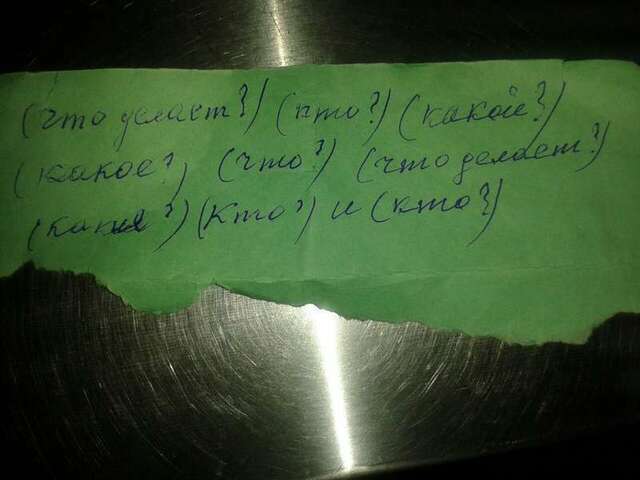 (что делает?) (кто?) (какой?)
(какое?) (что?) (что делает?)
(какие?) (Кто?) и (кто?)